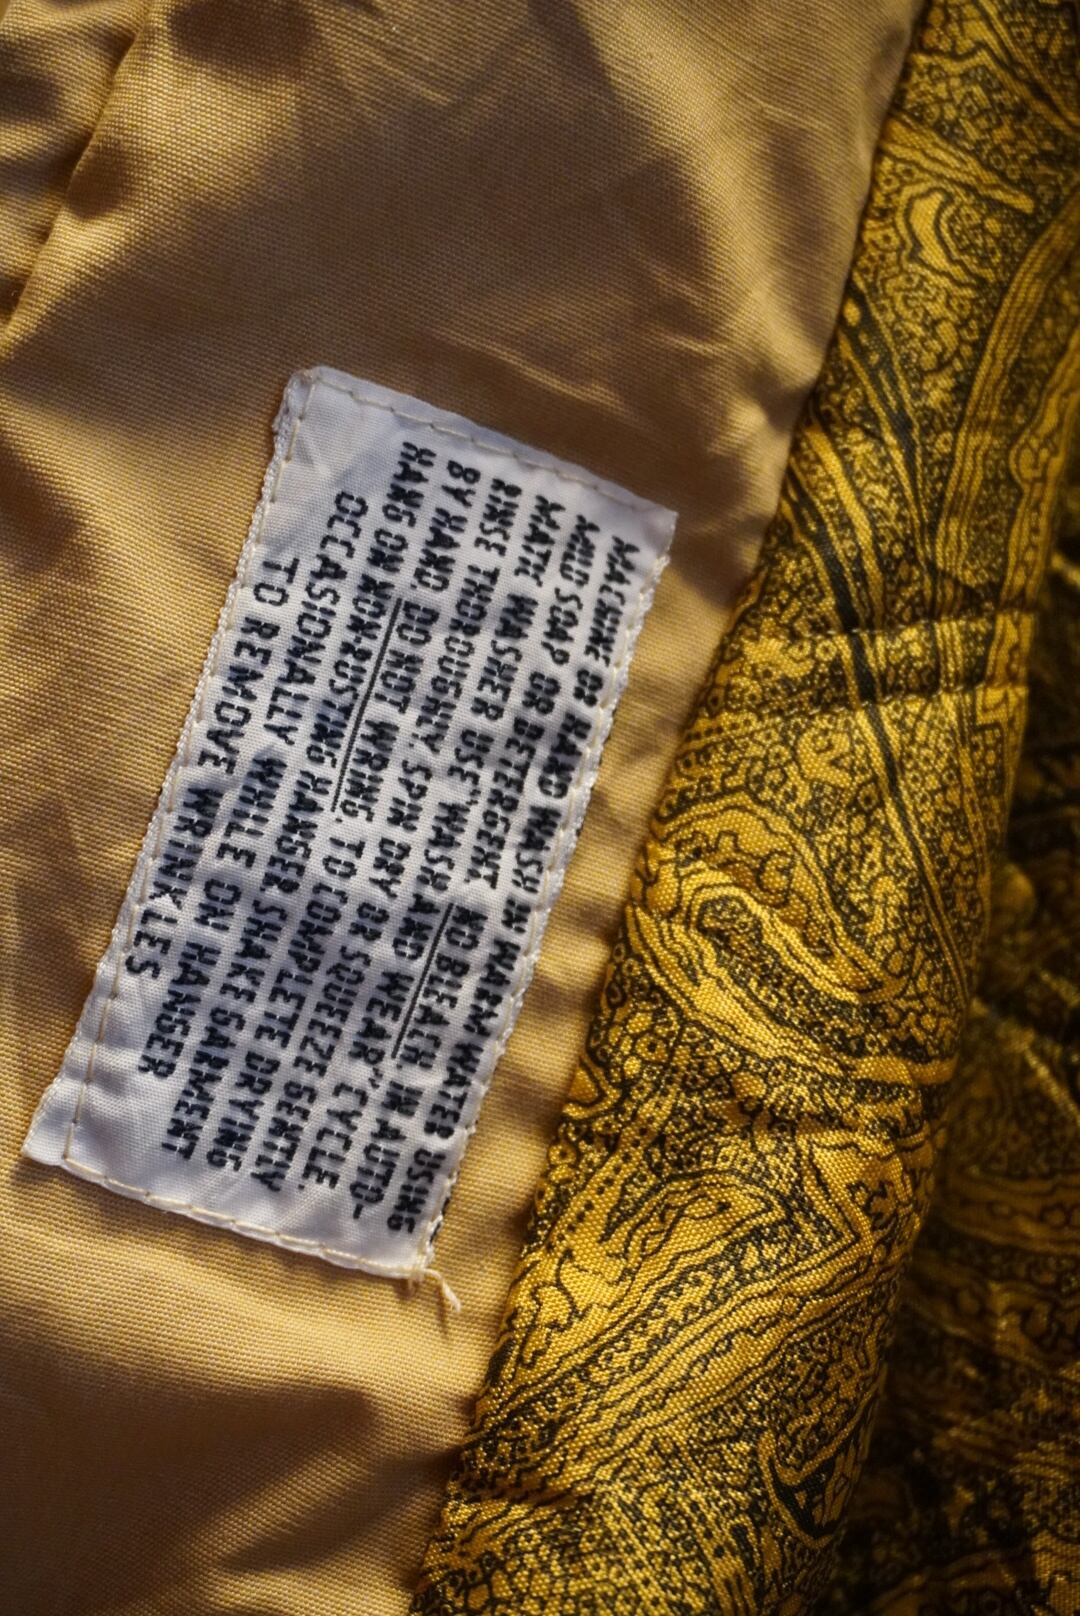 MACHINE OR HAND WASH IN WARM WATER USING
MILD SOAP OR DETERGENT. NO BLEACH. IN AUTO-
MATIC WASHER USE "WASH AND WEAR" CYCLE.
RINSE THOROUGHLY. SPIN DRY OR SQUEEZE GENTLY
BY HAND. DO NOT WRING. TO COMPLETE DRYING
HANG ON NON-RUSTING HANGER. SHAKE GARMENT
OCCASIONALLY WHILE ON HANGER
TO REMOVE WRINKLES